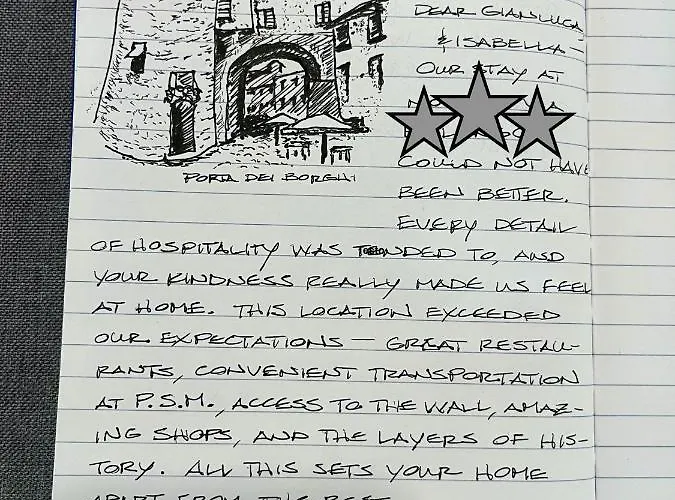 DEAR GIANLUCA
& ISABELLA —
OUR STAY AT
COULD NOT HAVE
PORTA DEI BORGHI
BEEN BETTER.
EVERY DETAIL
OF HOSPITALITY WAS TENDED TO, AND
YOUR KINDNESS REALLY MADE US FEEL
AT HOME. THIS LOCATION EXCEEDED
OUR EXPECTATIONS — GREAT RESTAU-
RANTS, CONVENIENT TRANSPORTATION
AT P.S.M., ACCESS TO THE WALL, AMAZ-
ING SHOPS, AND THE LAYERS OF HIS-
TORY. ALL THIS SETS YOUR HOME
APART FROM THE REST